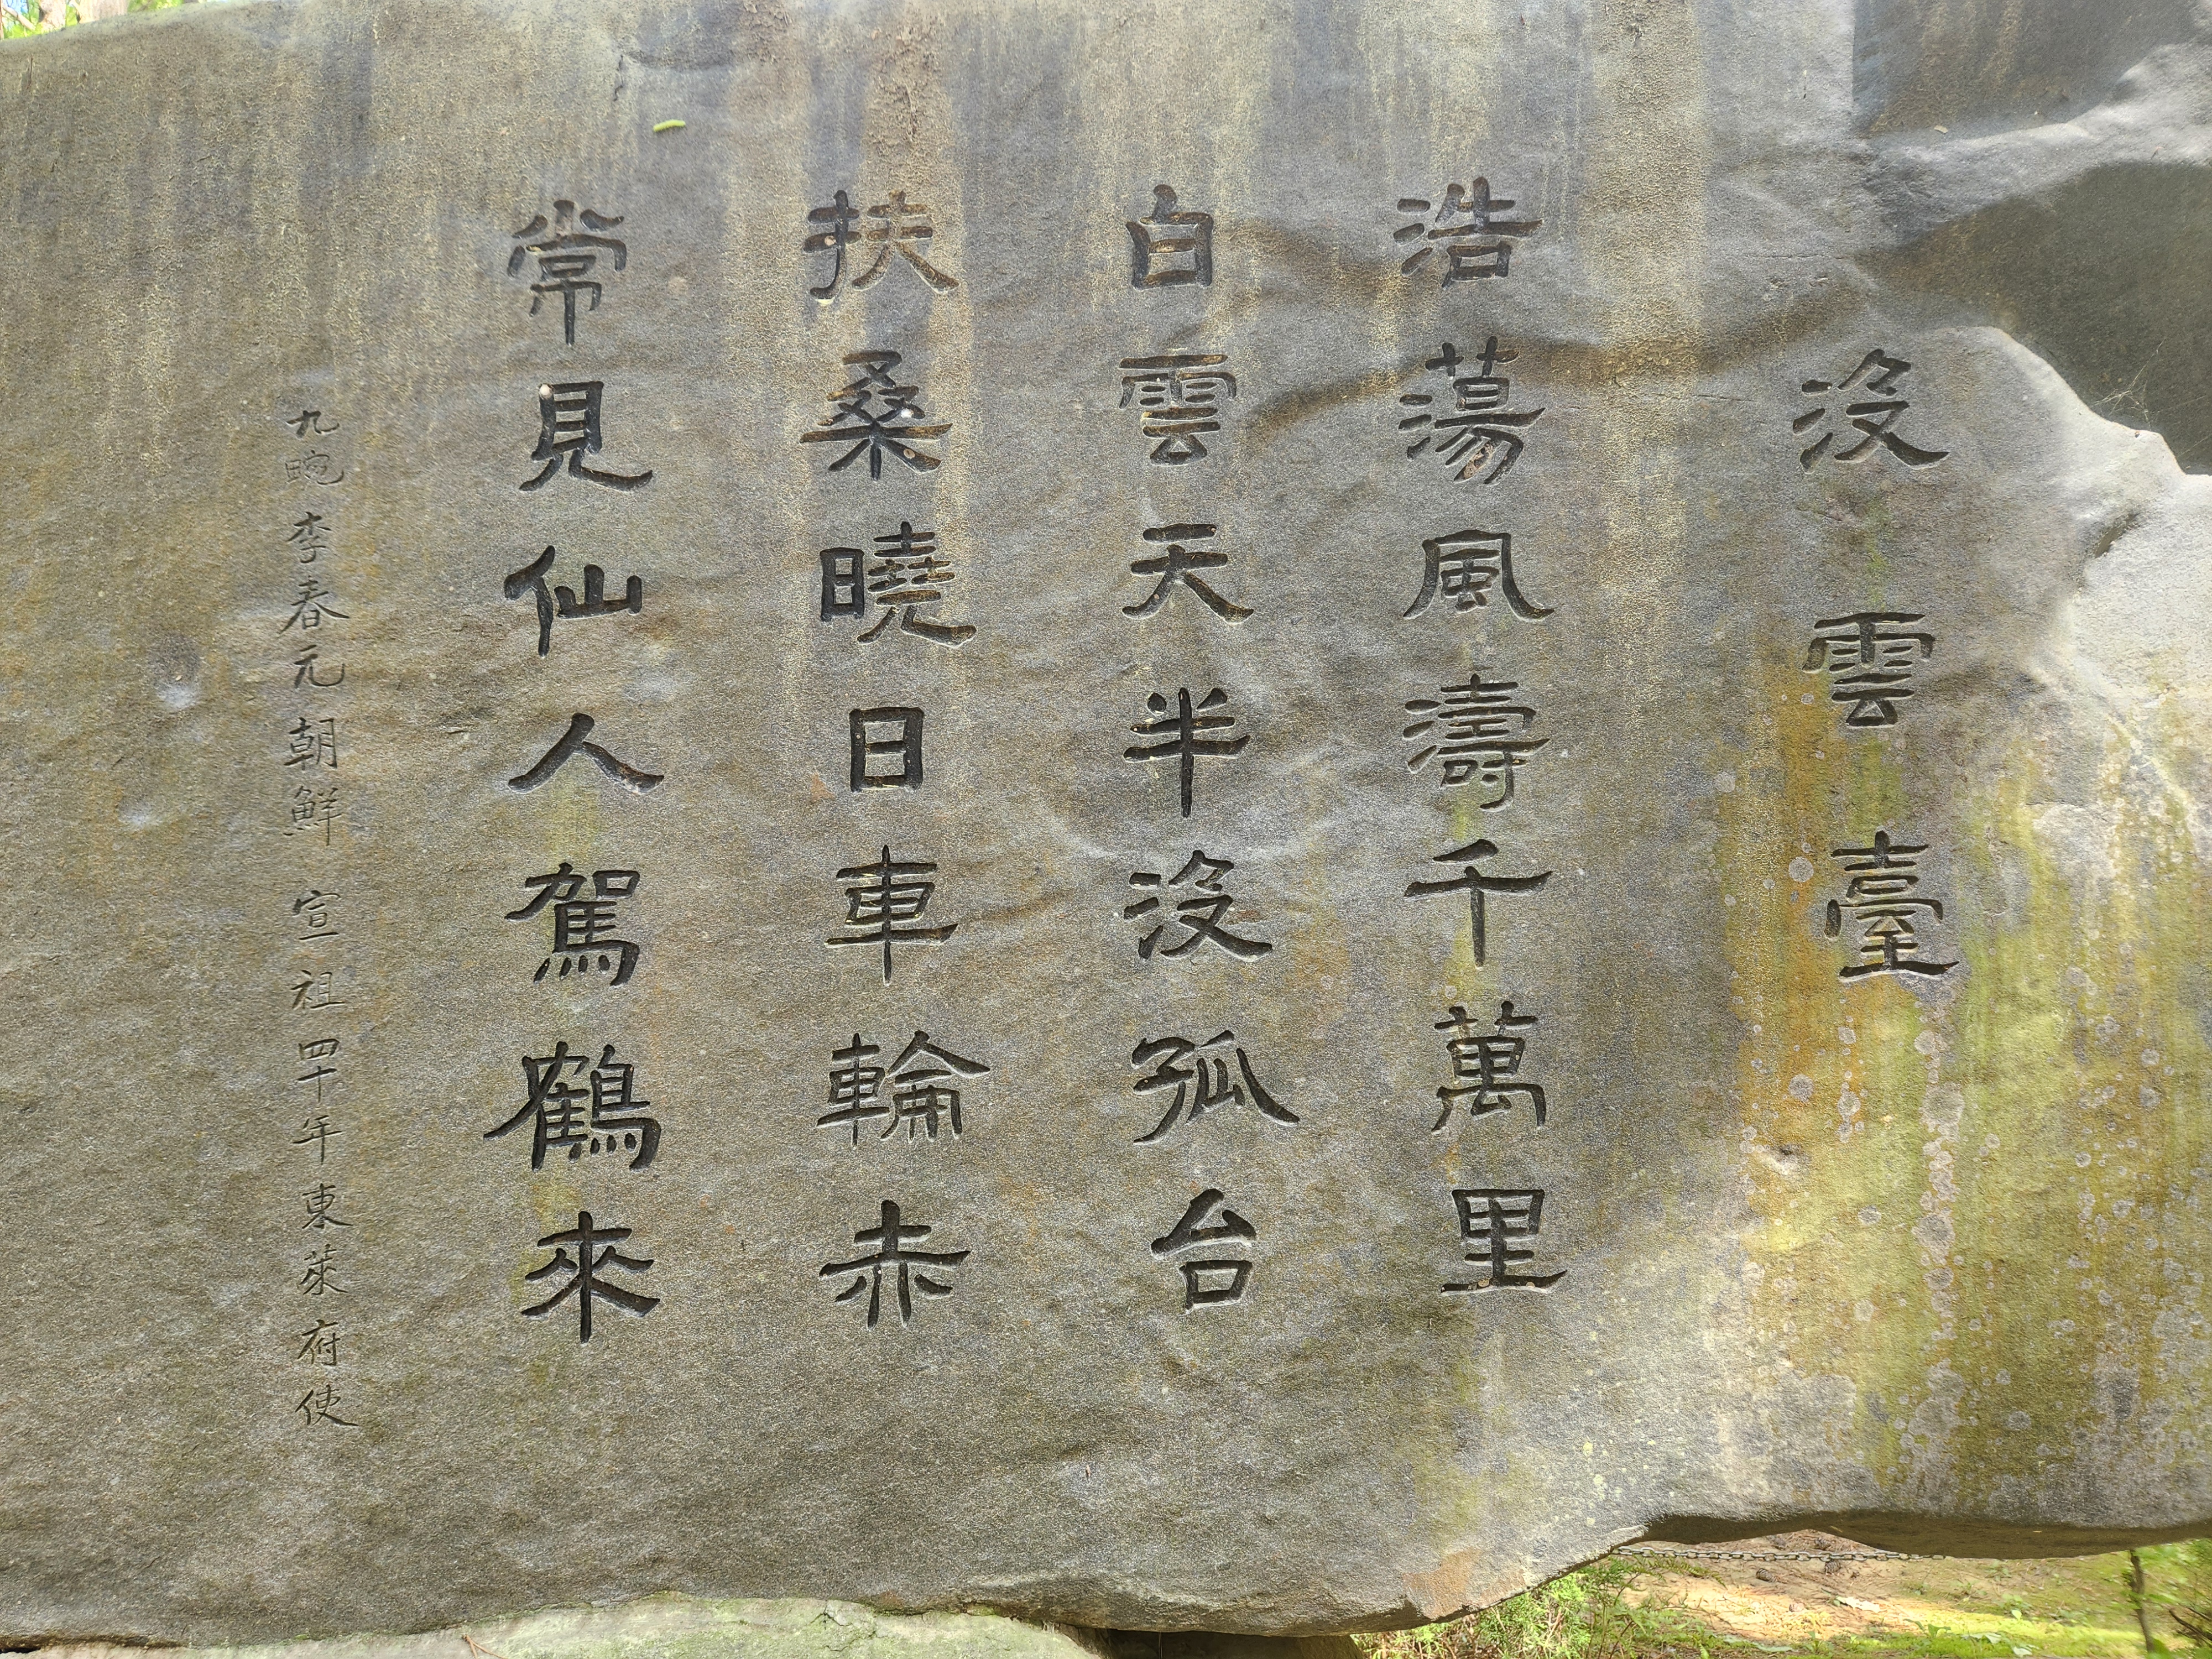 沒雲臺
浩蕩風濤千萬里
白雲天半沒孤台
扶桑曉日車輪赤
常見仙人駕鶴來
九畹 李春元 朝鮮 宣祖四十年東萊府使